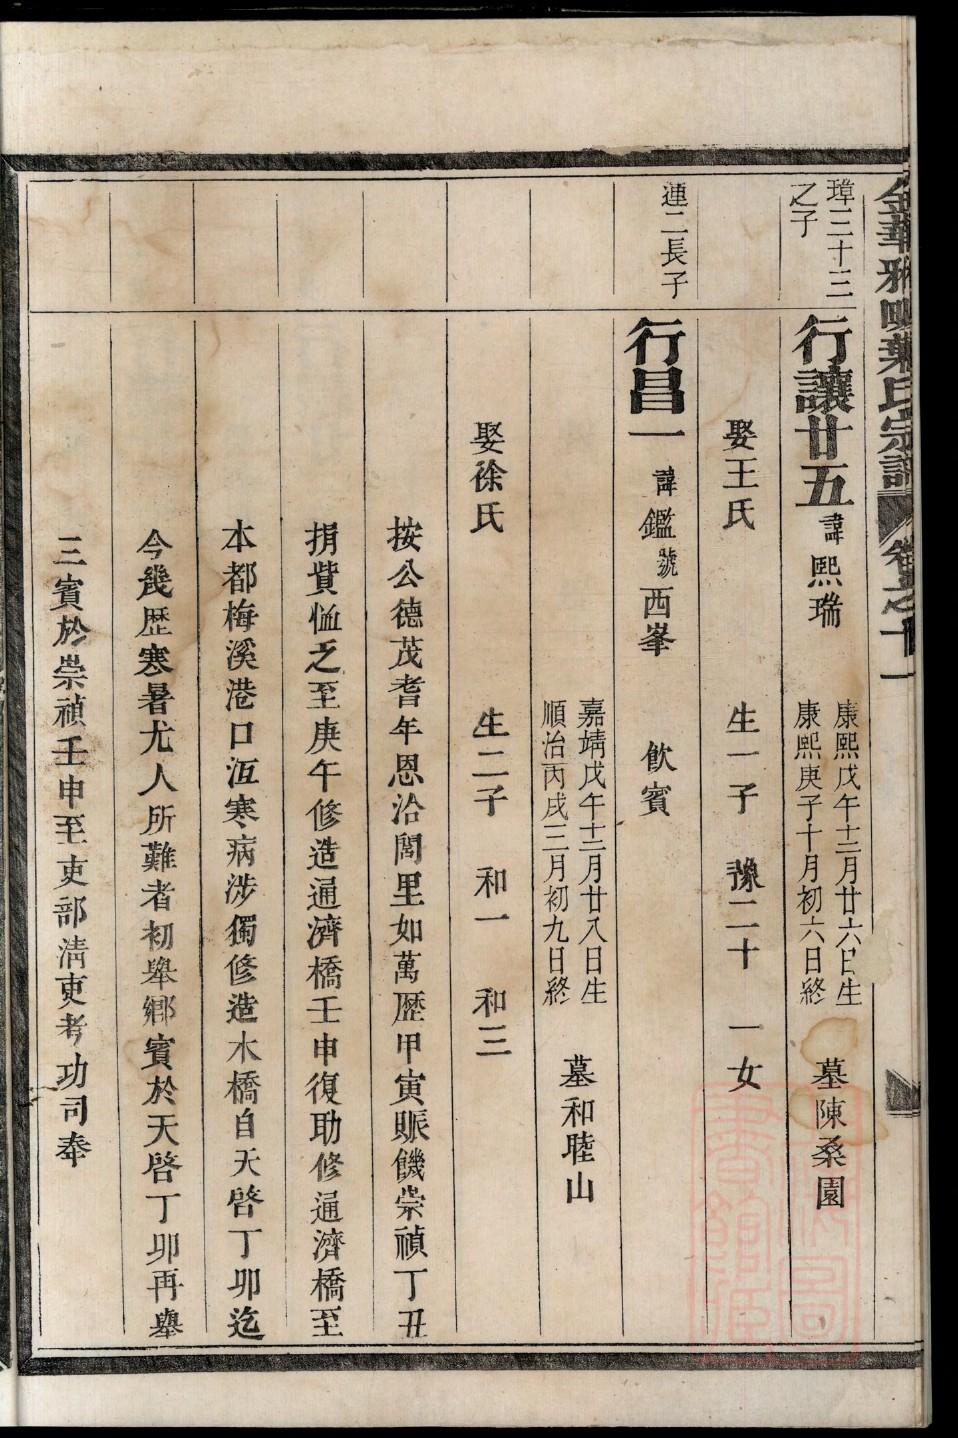 金華雅畈葉氏宗譜 卷之十一
璋三十三
之子
行讓廿五 諱熙瑞
康熙戊午十二月廿六日生
康熙庚子十月初六日終
墓陳桑園
娶王氏 生一子 豫二十 一女
連二長子
行昌一 諱鑑號西峯 飲賓
嘉靖戊午十二月廿八日生
順治丙戌三月初九日終
墓和睦山
娶徐氏 生二子 和一 和三
按公德茂耆年恩洽閭里如萬歷甲寅賑饑崇禎丁丑
捐貲恤之至庚午修造通濟橋壬申復助修通濟橋至
本都梅溪港口冱寒病涉獨修造木橋自天啓丁卯迄
今幾歷寒暑尤人所難者初舉鄉賓於天啓丁卯再舉
三賓於崇禎壬申至吏部清吏考功司奉